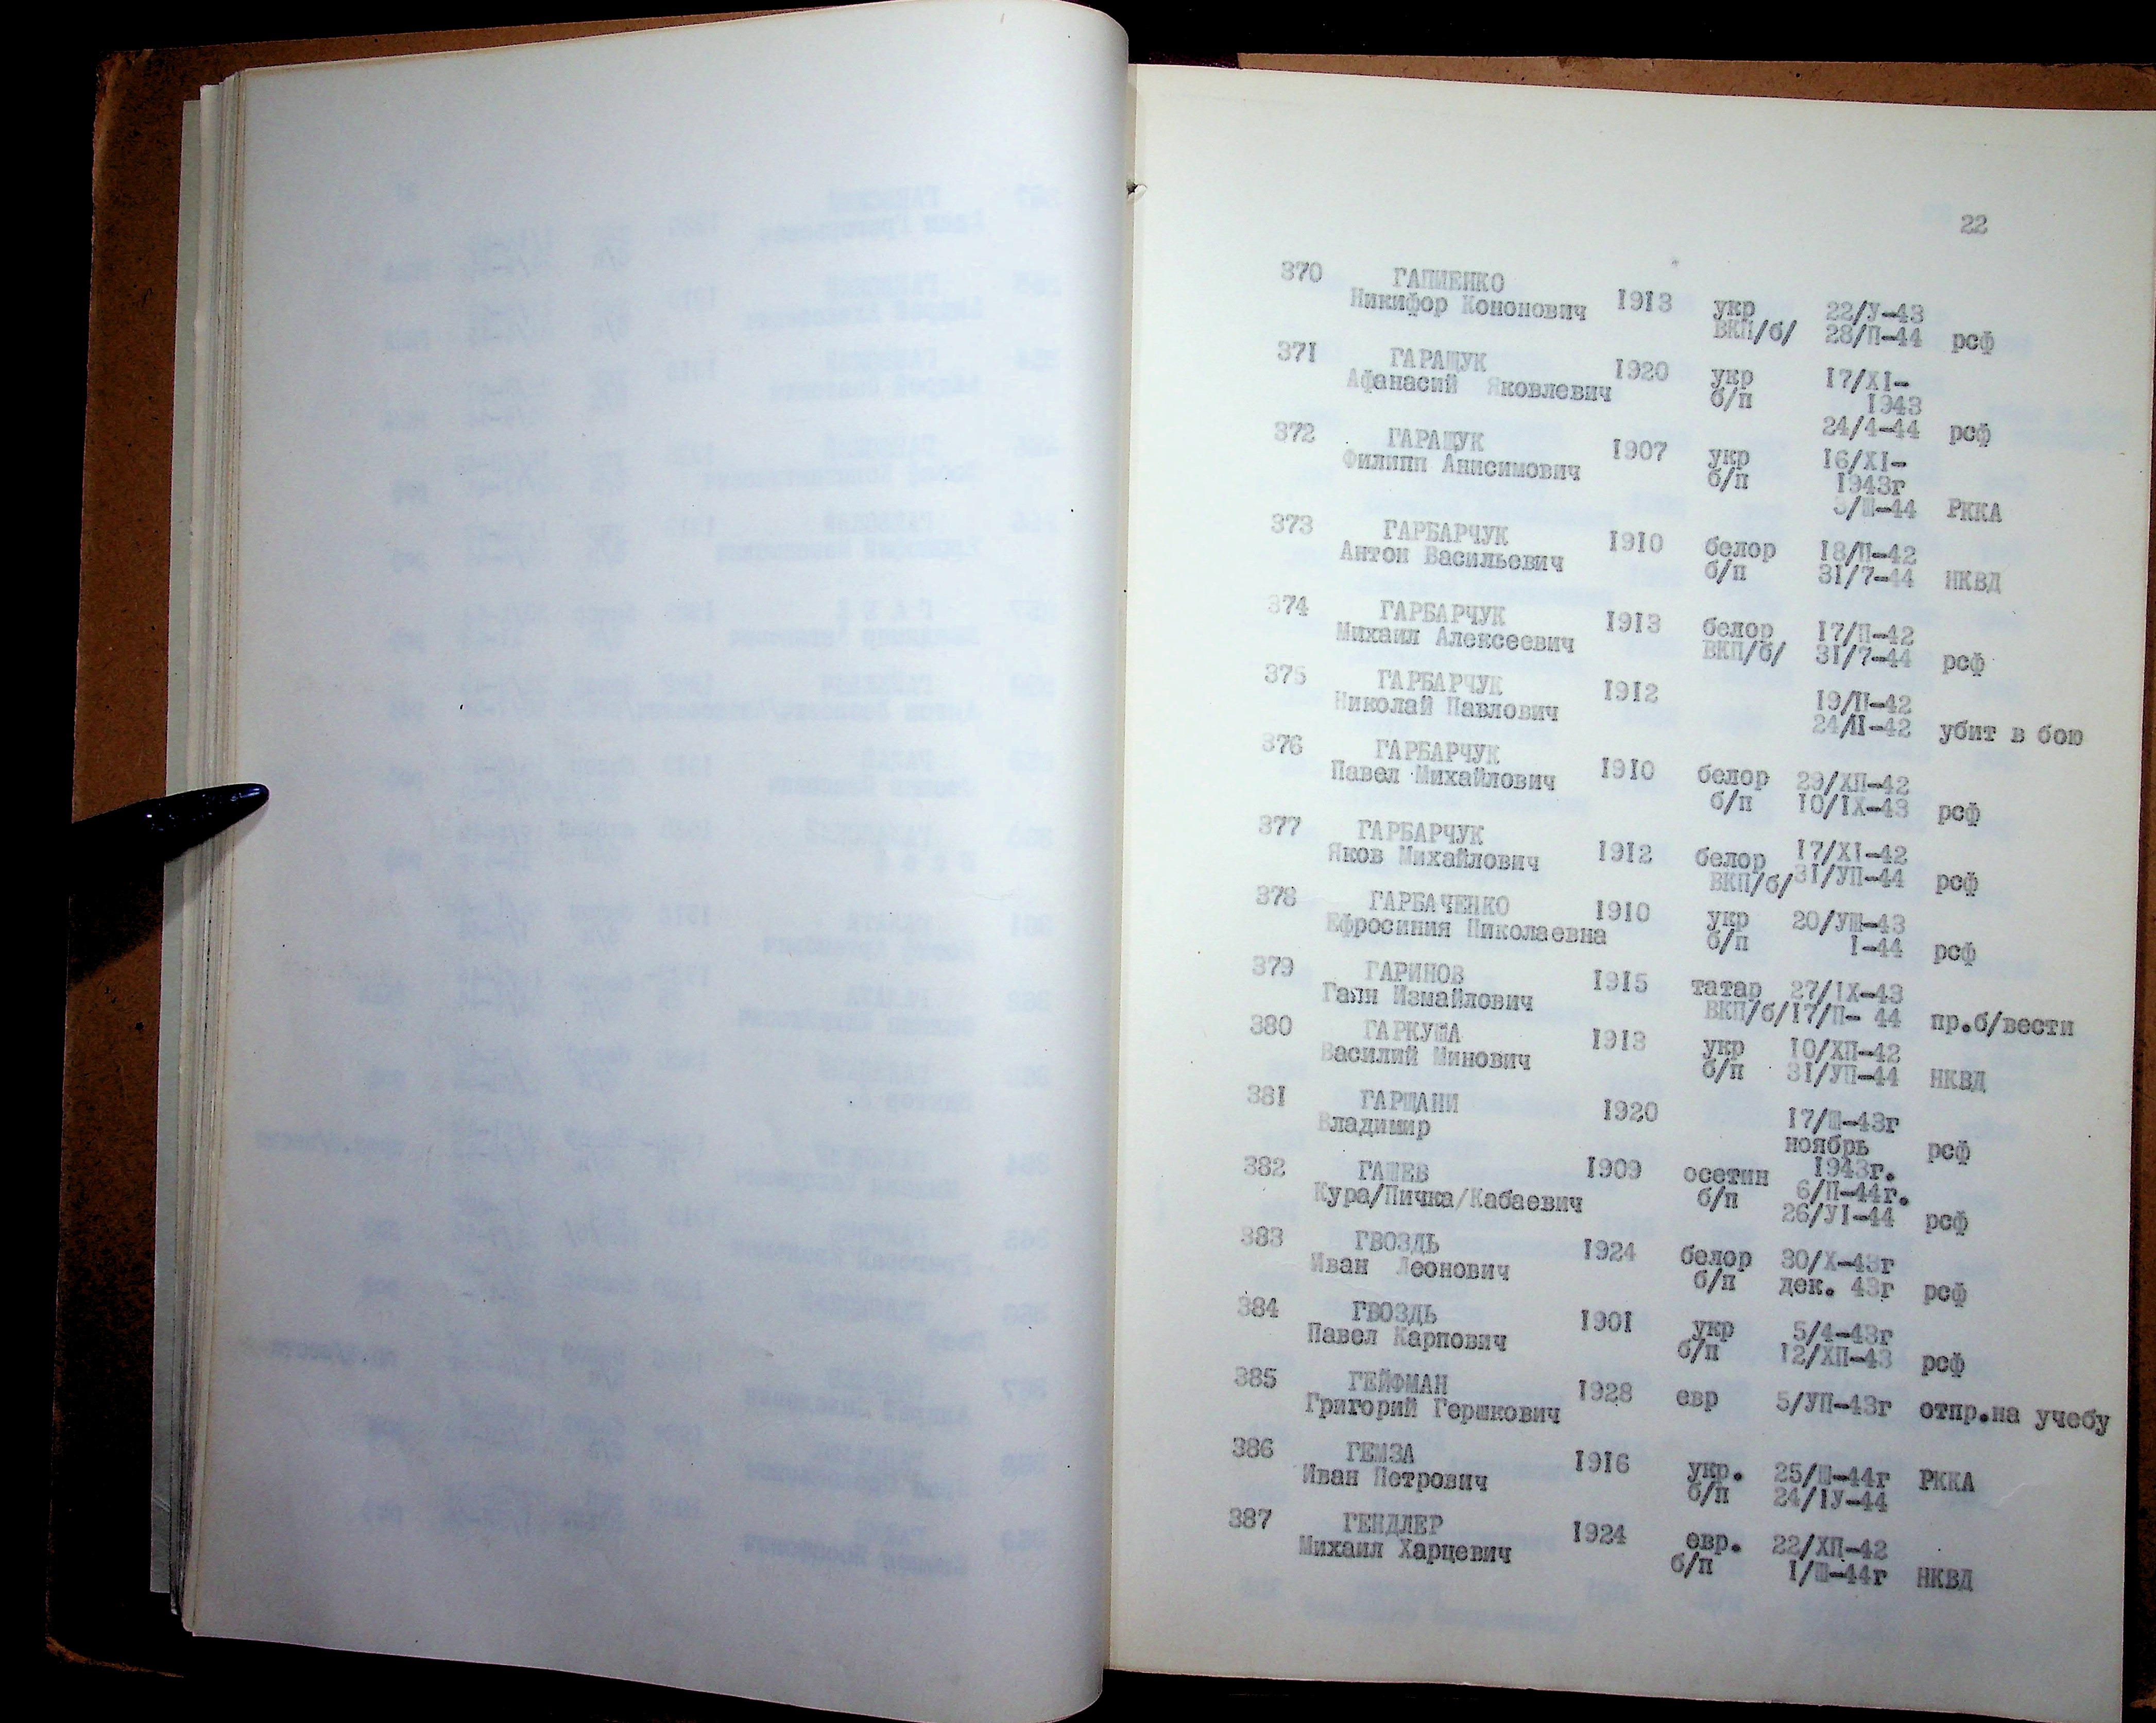 22
370 ГАПИЕНКО
Никифор Кононович 1913 укр 22/У-43
ВКП/б/ 28/П-44 рсф
371 ГАРАЩУК
Афанасий Яковлевич 1920 укр 17/XI-
б/п 1943
24/4-44 рсф
372 ГАРАЩУК
Филипп Анисимович 1907 укр 16/XI-
б/п 1943г
3/Ш-44 РККА
373 ГАРБАРЧУК
Антон Васильевич 1910 белор 18/П-42
б/п 31/7-44 НКВД
374 ГАРБАРЧУК
Михаил Алексеевич 1913 белор 17/П-42
ВКП/б/ 31/7-44 рсф
375 ГАРБАРЧУК
Николай Павлович 1912 19/П-42
24/П-42 убит в бою
376 ГАРБАРЧУК
Павел Михайлович 1910 белор 29/ХП-42
б/п 10/IX-43 рсф
377 ГАРБАРЧУК
Яков Михайлович 1912 белор 17/XI-42
ВКП/б/ 31/УП-44 рсф
378 ГАРБАЧЕНКО
Ефросиния Николаевна 1910 укр 20/УШ-43
б/п I-44 рсф
379 ГАРИНОВ
Гаян Измайлович 1915 татар 27/IX-43
ВКП/б/17/П- 44 пр.б/вести
380 ГАРКУША
Василий Минович 1913 укр 10/ХП-42
б/п 31/УП-44 НКВД
381 ГАРЩАНИ
Владимир 1920 17/Ш-43г
ноябрь рсф
1943г.
382 ГАШЕВ
Кура/Пичка/Кабаевич 1909 осетин 6/П-44г.
б/п 26/УI-44 рсф
383 ГВОЗДЬ
Иван Леонович 1924 белор 30/Х-43г
б/п дек. 43г рсф
384 ГВОЗДЬ
Павел Карпович 1901 укр 5/4-43г
б/п 12/ХП-43 рсф
385 ГЕЙФМАН
Григорий Гершкович 1928 евр 5/УП-43г отпр.на учебу
386 ГЕМЗА
Иван Петрович 1916 укр. 25/Ш-44г РККА
б/п 24/IУ-44
387 ГЕНДЛЕР
Михаил Харцевич 1924 евр. 22/ХП-42
б/п I/Ш-44г НКВД